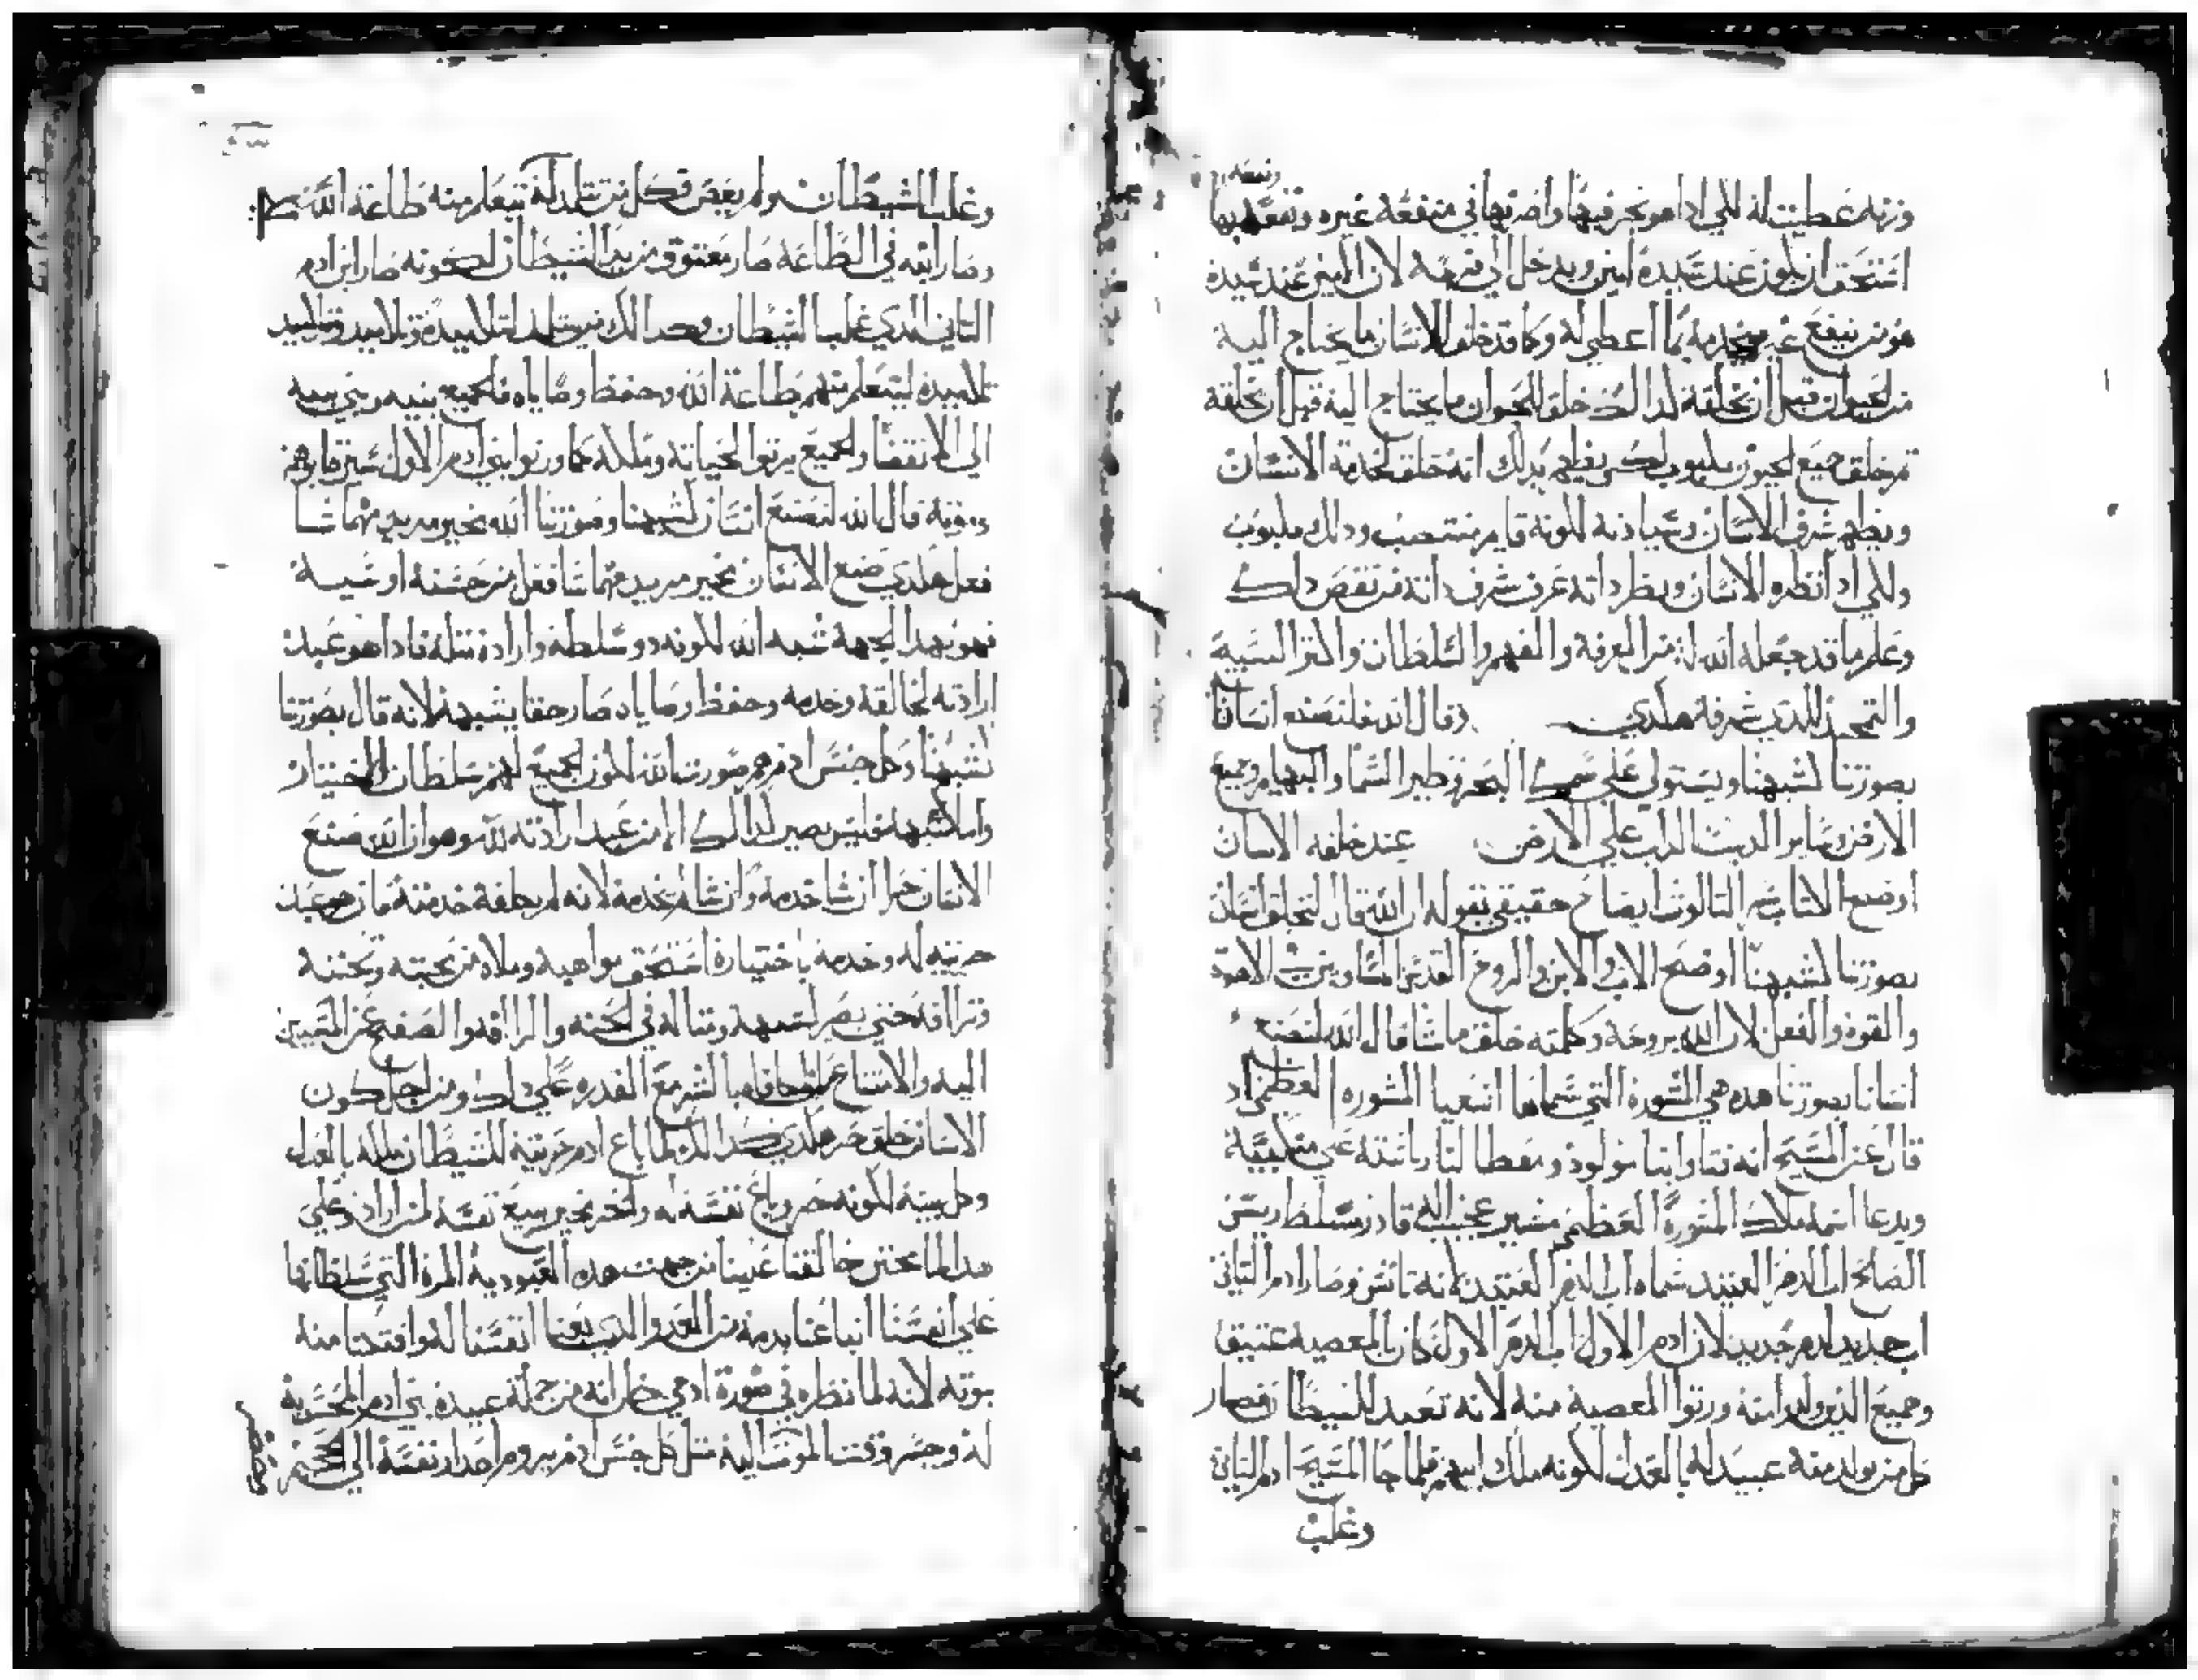 وزنه عطيت له لكي اذا هو تجر فيها واصرفها في منفعة غيره ونفعه بها
استحق ان يكون عند سيده امين ويدخل الي فرحه لان الامين عند سيده
هو من ينفع غيره بما اعطي له وكما قد خلق للانسان ما يحتاج اليه
من الحيوان قبل ان يخلقه لدالك خلق للحيوان ما يحتاج اليه قبل ان يخلقه
تم خلق جميع الحيوان مكبوب لكي يظهر بدلك انه خلق لخدمة الانسان
ويظهر شرف الانسان وسيادته لكونه قايم منتصب ودلك مكبوب
ولكي اذ انظره الانسان وينظر داته عرف شرف داته من نقص دلك
وعلم ما قد جعله الله له من المعرفة والفهم والسلطان واكتر السبيح
والتمجيد للدي شرفه هكدي وقال الله فلنصنع انسانا
بصورتنا لشبهنا ويستولي علي سمك البحر وطير السما والبهايم وجميع
الارض وساير الدبيب الداب علي الارض عند خلقه الانسان
اوضح الكتاب سر التالوت ايضاح حقيقي بقوله ان الله قال لنخلق انسان
بصورتنا لشبهنا اوضح الاب والابن والروح القدس المتساويين في
والقوه والفعل لان الله بروحه وكلمته خلق ما شا قال الله لنصنع
انسانا بصورتنا هده هي المشورة التي سماها اشعيا المشوره العظمي اد
قال عن المسيح انه فتا وابنا مولود ومعطا لنا رياسته علي منكبيه
ويدعا اسمه ملاك المشورة العظمي مشير عجيب الله قادر مسلط رييس
الصلح اب الدهر العتيد سماه اب الدهر العتيد لانه تانس وصار ادم التاني
اب جديد لدهر جديد لان ادم الاول اب الدهر الاول كان بالمعصيه عتيق
وجميع الذين ولدوا منه ورتوا المعصية منه لانه تعبد للشيطان فصار
كل من يولد منه عبيد له بالعدل لكونه ملك ابيهم فلما جا المسيح ادم التاني
وغلب
وغلب الشيطان ولم يعص فكل من يتلمد له يتعلم منه طاعة الله
وصار ابنه في الطاعة صار معتوق من يد الشيطان لكونه صار ابن ادم
التاني الدي غلب الشيطان وكدالك من يتلمد لتلاميده وتلاميد
تلاميده ليتعلم منهم طاعة الله وحفظ وصاياه فالجميع بنيه وبني بنيه
الي الانقضا والجميع يرتوا الحياته وملكه كما ورتوا بني ادم الاول
وموته قال الله لنصنع انسان لشبهنا وصورتنا الله مخير مريد مهما شا
فعل هكدي صنع الانسان مخير مريد مهما شا فعل من حسنه او سيه
فهو بهدا الجهة شبه الله لكونه دو سلطه وارادة متله فاداهو عبد
ارادته لخالقه وخدمه وحفظ وصاياه صار حقا يشبهه لانه قال بصورتنا
لشبهنا وكل جنس ادم هم صورت الله لكون الجميع لهم سلطان الاختيار
واما شبهه فليس يصير لدالك الا من عبد ارادته لله وهو ان الله صنع
الانسان حر ان شا خدمه وان شا لم يخدمه لانه لم يكلفه خدمته فان هو عبد
حريته له وخدمه باختياره استحق مواهبه وملاه من محبته وتحننه
حتي يصير يشبهه ومتاله في المحبه والرافه والصفح عن المسيين
اليه والامتناع المكافاه بالشر مع القدره علي دلك ومن اجل كون
الانسان خلق حر هكدي كدالك لما باع ادم حريته للشيطان ملكه بالعدل
وكل بنيه لكونه حر وباع نفسه له والحر مخير يبيع نفسه لمن اراد وعلي
هدا لما تحنن خالقنا علينا من جهت هده العبودية المرة التي سلطانها
علي انفسنا ابتاعنا بدمه من العدو الدي بعنا انفسنا له وافتدانا منه
بموته لانه لما نظره في صورة ادمي خال انه من جملة عبيده بني ادم
له وجسر وقت الموت اليه متل كل جنس ادم يروم احدار نفسه الي الجحيم